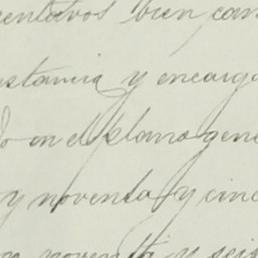 centavos bien can
stancia y encarga
do en el plano gene
y noventa y cinc
noventa y seis